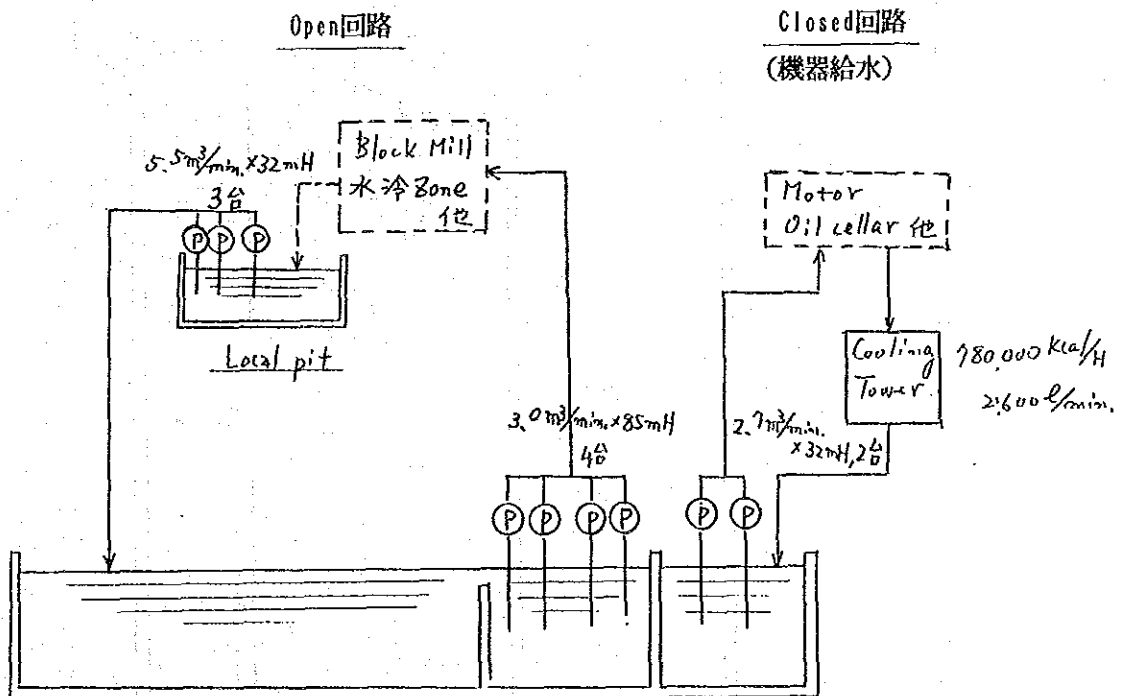 Open回路
Closed回路
(機器給水)
5.5m³/min.×32mH
3台
Block Mill
水冷Zone
他
P P P
Local pit
Motor
Oil cellar 他
Cooling
Tower
780,000 Kcal/H
2,600 l/min.
3.0m³/min.×85mH
4台
2.7m³/min.
×32mH, 2台
P P P P
P P